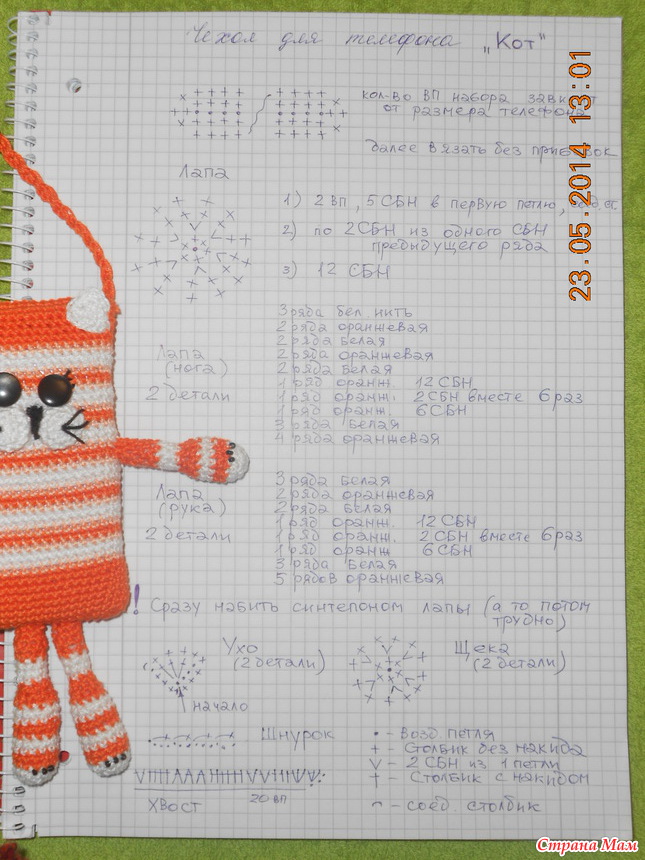 Чехол для телефона „Кот"
кол-во ВП набора
от размера телефона
далее вязать без
Лапа
1) 2 ВП, 5 СБН в первую петлю,
2) по 2 СБН из одного СБН
предыдущего ряда
3) 12 СБН
23.05.2014 13:01
Лапа
(нога)
2 детали
3 ряда бел. нить
2 ряда оранжевая
2 ряда белая
2 ряда оранжевая
2 ряда белая
1 ряд оранж. 12 СБН
1 ряд оранж. 2 СБН вместе 6 раз
1 ряд оранж. 6 СБН
3 ряда белая
4 ряда оранжевая
Лапа
(рука)
2 детали
3 ряда белая
2 ряда оранжевая
2 ряда белая
1 ряд оранж. 12 СБН
1 ряд оранж. 2 СБН вместе 6 раз
1 ряд оранж 6 СБН
3 ряда белая
5 рядов оранжевая
! Сразу набить синтепоном лапы (а то потом
трудно)
Ухо
(2 детали)
начало
Щека
(2 детали)
Шнурок
20 ВП
Хвост
• - Возд. петля
+ - Столбик без накида
V - 2 СБН из 1 петли
† - Столбик с накидом
⌢ - соед. столбик
Страна Мам